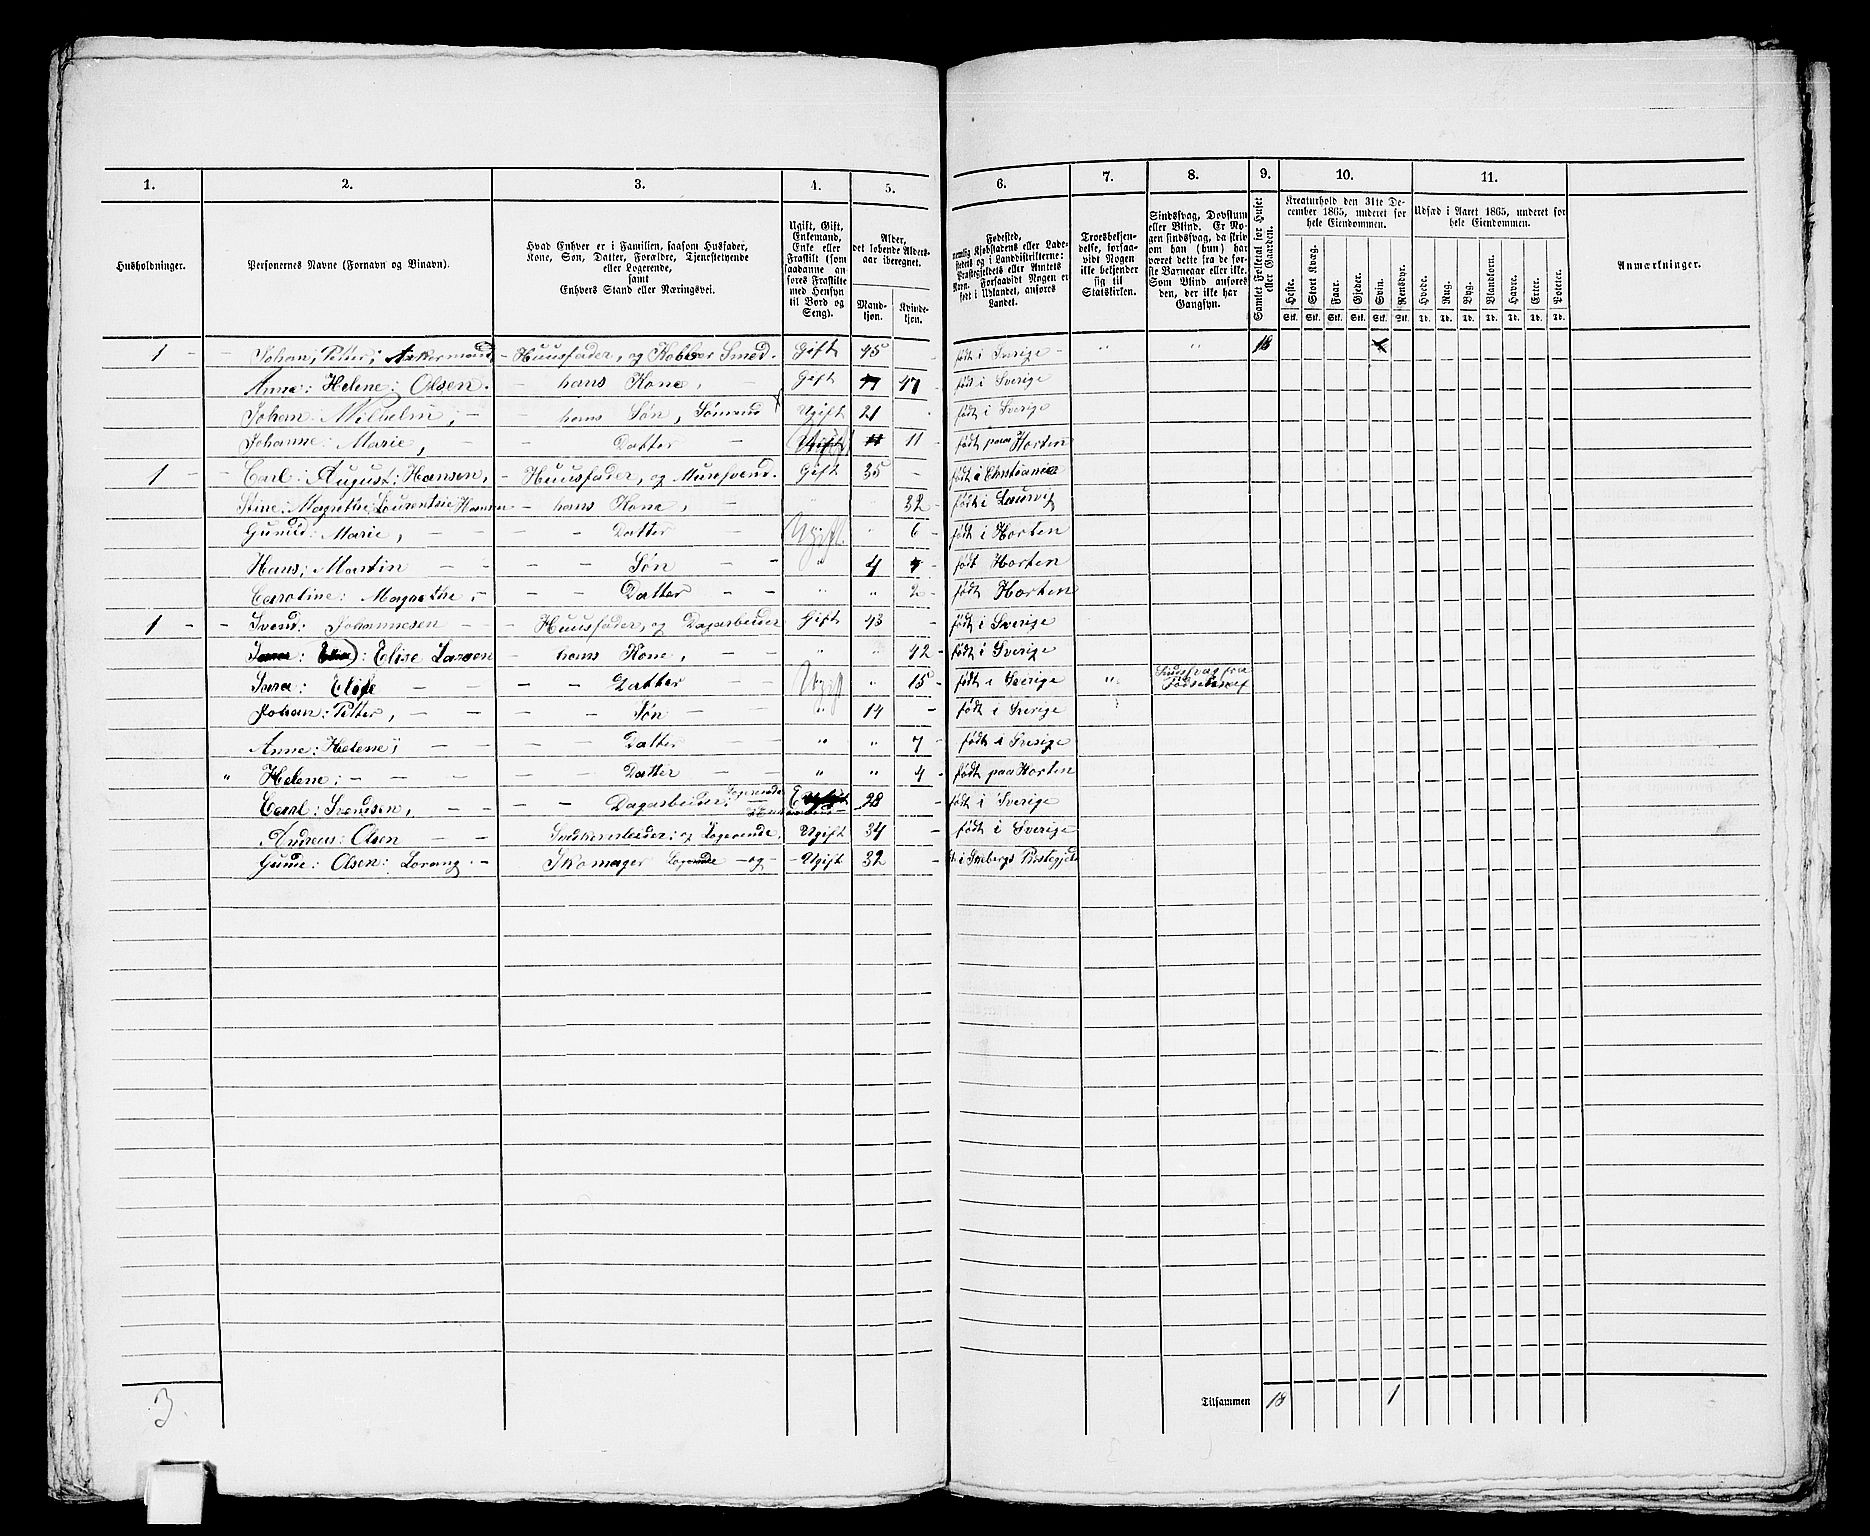 1. 2. 3. 4. 5. 6. 7. 8. 9. 10. 11.
Husholdninger.
Personernes Navne (Fornavn og Tilnavn).
Hvad Enhver er i Familien, saasom Husfader, Kone, Søn, Datter, Forældre, Tjenestetyende eller Logerende, samt Enhvers Stand eller Næringsvei.
Ugift, Gift, Enkemand, Enke eller Fraskilt (som saadanne anføres Fraskilte med Hensyn til Bord og Seng).
Alder, det løbende Aldersaar iberegnet.
Mandkjøn. Kvindekjøn.
Fødested, nemlig Kjøbstadens eller Ladestedets og i Landdistrikterne: Præstegjeldets eller Amtets Navn. Forsaavidt Nogen er født i Udlandet, anføres Landet.
Troesbekjendelse, forsaavidt Nogen ikke bekjender sig til Statskirken.
Sindssvag, Døvstum eller Blind. Er Nogen sindssvag, da skriv om han (hun) har været dette fra de første Barneaar eller ikke. Som Blind anføres den, der ikke har Gangsyn.
Samlet Folketal for Huset eller Gaarden.
Kreaturhold den 31te December 1865, underet for hele Eiendommen.
Udsæd i Aaret 1865, underet for hele Eiendommen.
Anmærkninger.
Heste. Stort Kvæg. Faar. Gjeder. Svin. Rensdyr. Hvede. Rug. Byg. Blandkorn. Havre. Erter. Poteter.
Stk. Stk. Stk. Stk. Stk. Stk. Td. Td. Td. Td. Td. Td. Td.
1 - Johan; Petter; Ankermand - Huusfader, og Kobber Smed. Gift 45 født i Sverige - " " 18
Anne: Helene: Olsen. - hans Kone, - Gift 47 - født i Sverige
Johan Wilhelm; - - hans Søn, Sømand Ugift 21 født i Sverige
Johanne: Marie, - Datter - Ugift 11 - født paa Horten
1 - Carl: August; Hansen, - Huusfader, og Muursvend. Gift 35 - født i Christiania
Stine: Magrethe; Laurentzie Hansen - hans Kone, - " 32 - født i Laurvig
Gunild: Marie, - - Datter - Ugift. " 6 - født i Horten
Hans; Martin - - Søn - " 4 født Horten
Caroline: Magrethe, - Datter - " " 2 - født Horten
1 - Svend: Johannesen - - Huusfader, og Dagarbeider Gift 43 - født i Sverige
: Elise Larsen - hans Kone, - " " 42 - født i Sverige
Sara: Elise - - Datter - Ugift " 15 - født i Sverige " Sinnsvag fra Fødselen af
Johan: Petter, - - Søn - " 14 - født i Sverige
Anne: Helene; - - Datter - " " 7 - født i Sverige
" Helene; - - Datter - " " 4 - født paa Horten
Carl: Svendsen, - - Dagarbeider; Logerende 28 - født i Sverige
Andreas: Olsen - og Logerende, Ugift 34 - født i Sverige
Gunde: Olsen: Lorang - - Skomager Logerende - og - Ugift 32 -
Tilsammen 18 1
3